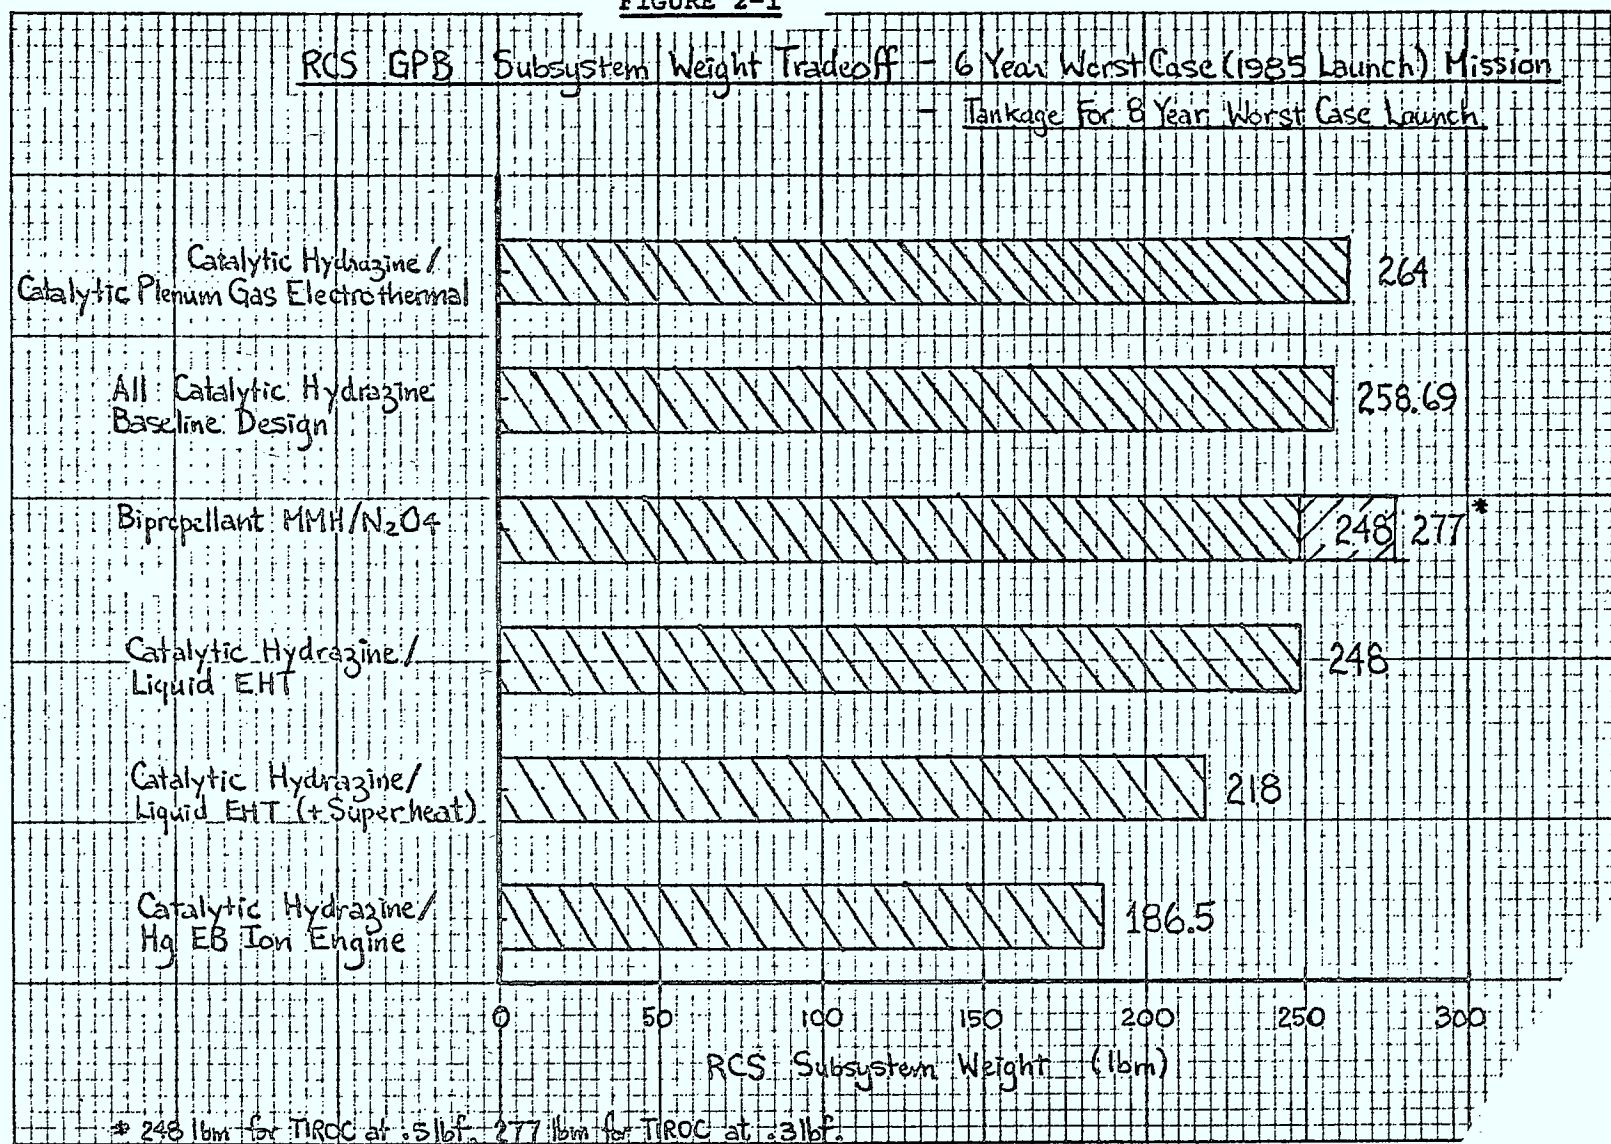 FIGURE 2-1
RCS GPB Subsystem Weight Tradeoff - 6 Year Worst Case (1985 Launch) Mission
- Tankage For 8 Year Worst Case Launch
Catalytic Hydrazine/
Catalytic Plenum Gas Electrothermal
264
All Catalytic Hydrazine
Baseline Design
258.69
Bipropellant MMH/N₂O₄
248 277*
Catalytic Hydrazine/
Liquid EHT
248
Catalytic Hydrazine/
Liquid EHT (+ Superheat)
218
Catalytic Hydrazine/
Hg EB Ion Engine
186.5
0 50 100 150 200 250 300
RCS Subsystem Weight (lbm)
* 248 lbm for TIROC at .5 lbf. 277 lbm for TIROC at .3 lbf.